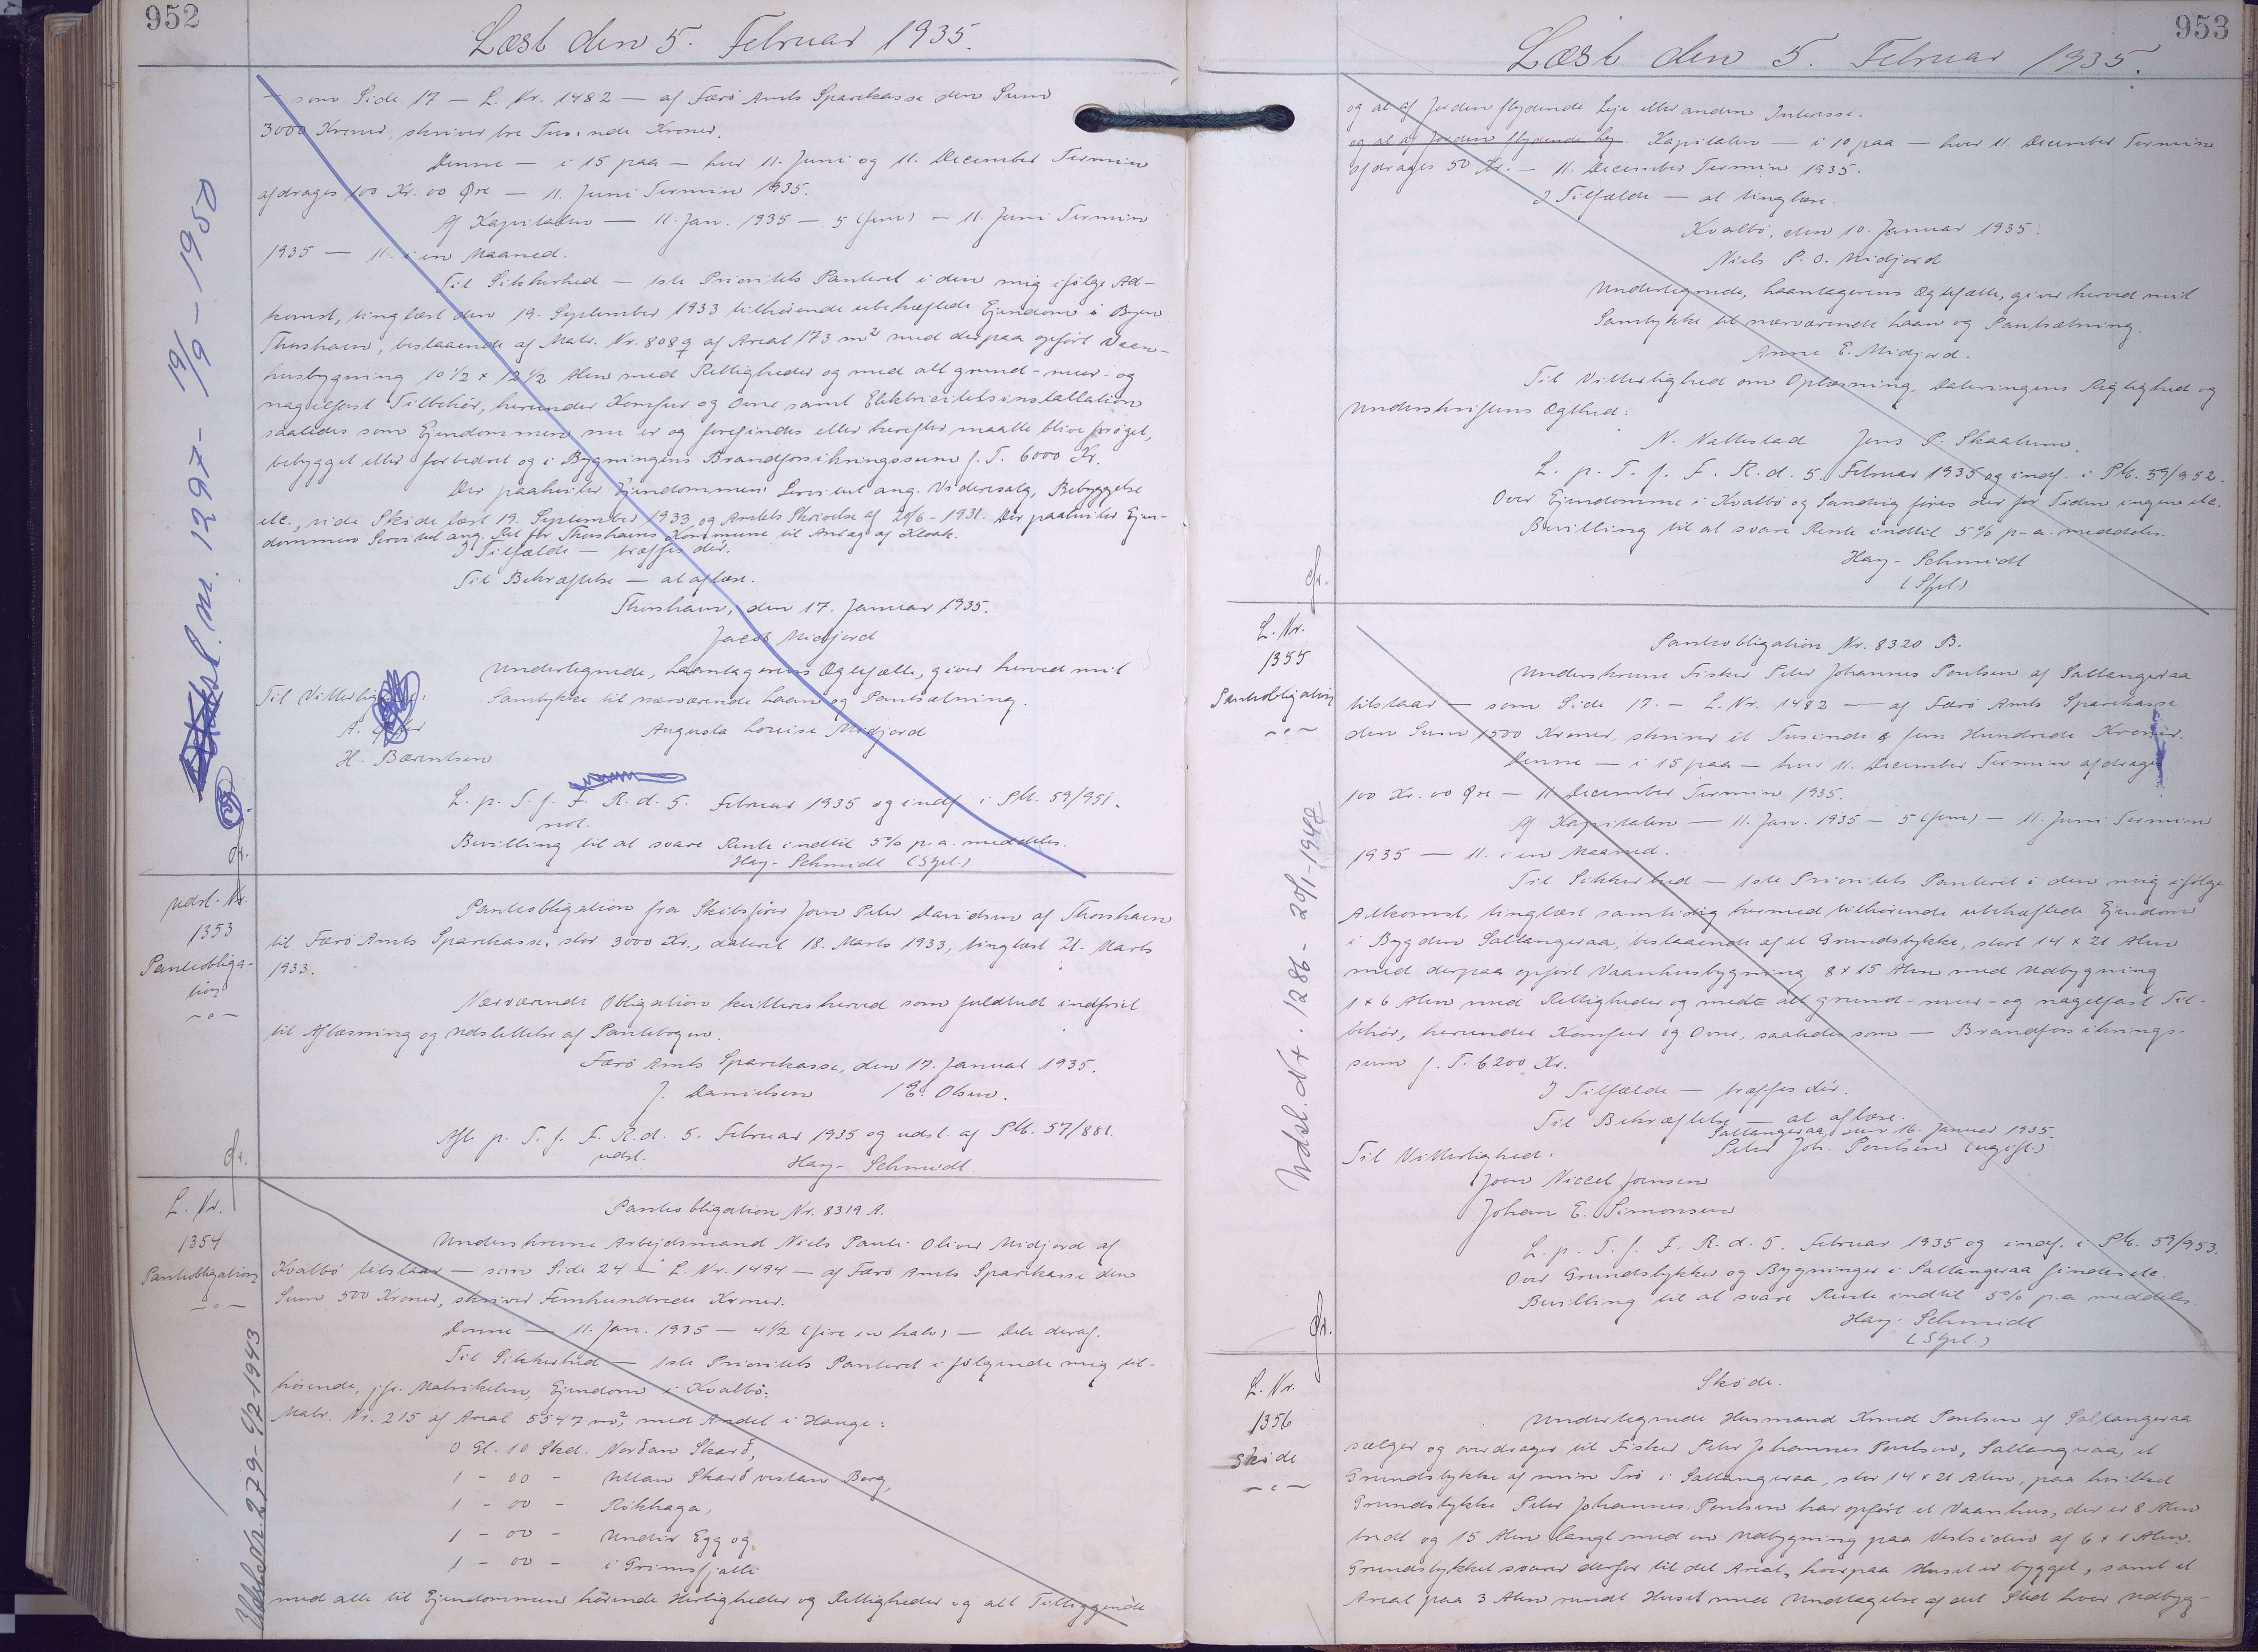 952
Læst den 5. Februar 1935.
— som Side 17 — L. Nr. 1482 — af Færø Amts Sparekasse den Sum
3000 Kroner, skriver tre Tusinde Kroner.
Denne — i 15 paa — hver 11. Juni og 11. December Termin
afdrages 100 Kr. 00 Øre — 11. Juni Termin 1935.
Af Kapitalen — 11. Jan. 1935 — 5 (fem) — 11. Juni Termin
1935 — 11. i en Maaned.
Til Sikkerhed — 1ste Prioritets Panteret i den mig ifølge Ad-
komst, tinglæst den 19. September 1933 tilhørende ubehæftede Ejendom i Byen
Thorshavn, bestaaende af Matr. Nr. 808g af Areal 173 m² med derpaa opført Vaan-
husbygning 10½ x 12½ Alen med Rettigheder og med alt grund- mur- og
nagelfast Tilbehør, herunder Komfur og Ovne samt Elektricitetsinstallation
saaledes som Ejendommen nu er og forefindes eller herefter maatte blive forøget,
bebygget eller forbedret og i Bygningens Brandforsikringssum f. T. 6000 Kr.
Der paahviler Ejendommen Servitut ang. Videresalg, Bebyggelse
etc., vide Skøde læst 19. September 1933 og Amtets Skrivelse af 20/6 - 1931. Der paahviler Ejen-
dommen Servitut ang. Ret for Thorshavns Kommune til Anlæg af Kloak.
I Tilfælde — træffes dér.
Til Bekræftelse — at aflæse.
Thorshavn, den 17. Januar 1935.
Jacob Midjord
Undertegnede, Laantagerens Ægtefælle, giver herved mit
Samtykke til nærværende Laan og Pantsætning.
Augusta Louise Midjord
Til Vitterlighed:
A.
H. Bærentsen
L. p. T. f. F. R. d. 5. Februar 1935 og indf. i Ptb. 59/951.
not.
Bevilling til at svare Rente indtil 5% p. a. meddeles.
Hay-Schmidt (Spl.)
Udsl. nr. 1297 - 19/9 - 1950
Fr.
Udsl. Nr.
1353
Pantobliga-
tion
— " —
Pantobligation fra Skibsfører Joen Peter Davidsen af Thorshavn
til Færø Amts Sparekasse, stor 3000 Kr., dateret 18. Marts 1933, tinglæst 21. Marts
1933.
Nærværende Obligation kvitteres herved som fuldtud indfriet
til Aflæsning og Udslettelse af Pantebogen.
Færø Amts Sparekasse, den 17. Januar 1935.
J. Danielsen / E. Olsen.
Afl. p. T. f. F. R. d. 5. Februar 1935 og udsl. af Ptb. 57/881.
udsl.
Hay-Schmidt.
Fr.
L. Nr.
1354
Pantobligation
— " —
Udsl. Nr. 279 - 9/2-1943
Pantobligation Nr. 8319 A.
Underskrevne Arbejdsmand Niels Pauli Oliver Midjord af
Kvalbø tilstaar — som Side 24 — L. Nr. 1494 — af Færø Amts Sparekasse den
Sum 500 Kroner, skriver Femhundrede Kroner.
Denne — 11. Jan. 1935 — 4½ (fire en halv) — Dele deraf.
Til Sikkerhed — 1ste Prioritets Panteret i følgende mig til-
hørende, jfr. Matrikelen, Ejendom i Kvalbø:
Matr. Nr. 215 af Areal 5547 m², med Andel i Hauge:
0 Gl. 10 Skd. Norðan Skarð,
1 - 00 - Uttan Skarð vestan Berg,
1 - 00 - Rókhaga,
1 - 00 - Undir Egg og
1 - 00 - i Grimsfjalli
med alle til Ejendommen hørende Herligheder og Rettigheder og alt Tilliggende
953
Læst den 5. Februar 1935.
og al af Jorden flydende Leje eller anden Interesse.
og al af Jorden flydende Lej Kapitalen — i 10 paa — hver 11. December Termin
afdrages 50 Kr. — 11. December Termin 1935.
I Tilfælde — at tinglæse.
Kvalbø, den 10. Januar 1935.
Niels P. O. Midjord
Undertegnede, Laantagerens Ægtefælle, giver herved mit
Samtykke til nærværende Laan og Pantsætning.
Anna E. Midjord.
Til Vitterlighed om Oplæsning, Dateringens Rigtighed og
Underskriftens Ægthed:
N. Nattestad Jens P. Skaalum.
L. p. T. f. F. R. d. 5. Februar 1935 og indf. i Ptb. 59/952.
Over Ejendomme i Kvalbø og Sandvig føres der for Tiden ingen etc.
Bevilling til at svare Rente indtil 5% p-a. meddeles.
Hay-Schmidt
(Spl.)
Fr.
L. Nr.
1355
Pantobligation
— " —
Udsl. Nr. 1286 - 20/1-1948
Pantobligation Nr. 8320 B.
Underskrevne Fisker Peter Johannes Poulsen af Saltangeraa
tilstaar — som Side 17. — L. Nr. 1482 — af Færø Amts Sparekasse
den Sum 1500 Kroner, skriver et Tusinde & fem Hundrede Kroner.
Denne — i 15 paa — hver 11. December Termin afdrages
100 Kr. 00 Øre — 11. December Termin 1935.
Af Kapitalen — 11. Jan. 1935 — 5 (fem) — 11. Juni Termin
1935 — 11. i en Maaned.
Til Sikkerhed — 1ste Prioritets Panteret i den mig ifølge
Adkomst, tinglæst samtidig hermed tilhørende ubehæftede Ejendom
i Bygden Saltangeraa, bestaaende af et Grundstykke, stort 14 x 21 Alen
med derpaa opført Vaanhusbygning, 8 x 15 Alen med Udbygning
1 x 6 Alen med Rettigheder og med alt grund- mur- og nagelfast Til-
behør, herunder Komfur og Ovne, saaledes som — Brandforsikrings-
sum f. T. 6200 Kr.
I Tilfælde — træffes dér.
Til Bekræftelse — at aflæse.
Saltangeraa, den 16. Januar 1935.
Til Vitterlighed:
Peter Joh. Poulsen (ugift)
Joen Niccel Joensen
Johan E. Simonsen
L. p. T. f. F. R. d. 5. Februar 1935 og indf. i Ptb. 59/953.
Over Grundstykker og Bygninger i Saltangeraa findes etc.
Bevilling til at svare Rente indtil 5% p.a. meddeles.
Hay-Schmidt
(Spl.)
Fr.
L. Nr.
1356
Skøde
— " —
Skøde.
Undertegnede Husmand Knud Poulsen af Saltangeraa
sælger og overdrager til Fisker Peter Johannes Poulsen, Saltangeraa, et
Grundstykke af min Trø i Saltangeraa, stor 14 x 21 Alen, paa hvilket
Grundstykke Peter Johannes Poulsen har opført et Vaanhus, der er 8 Alen
bredt og 15 Alen langt med en Udbygning paa Vestsiden af 6 x 1 Alen.
Grundstykket svarer derfor til det Areal, hvorpaa Huset er bygget, samt et
Areal paa 3 Alen rundt Huset med Undtagelse af det Sted hvor Udbyg-